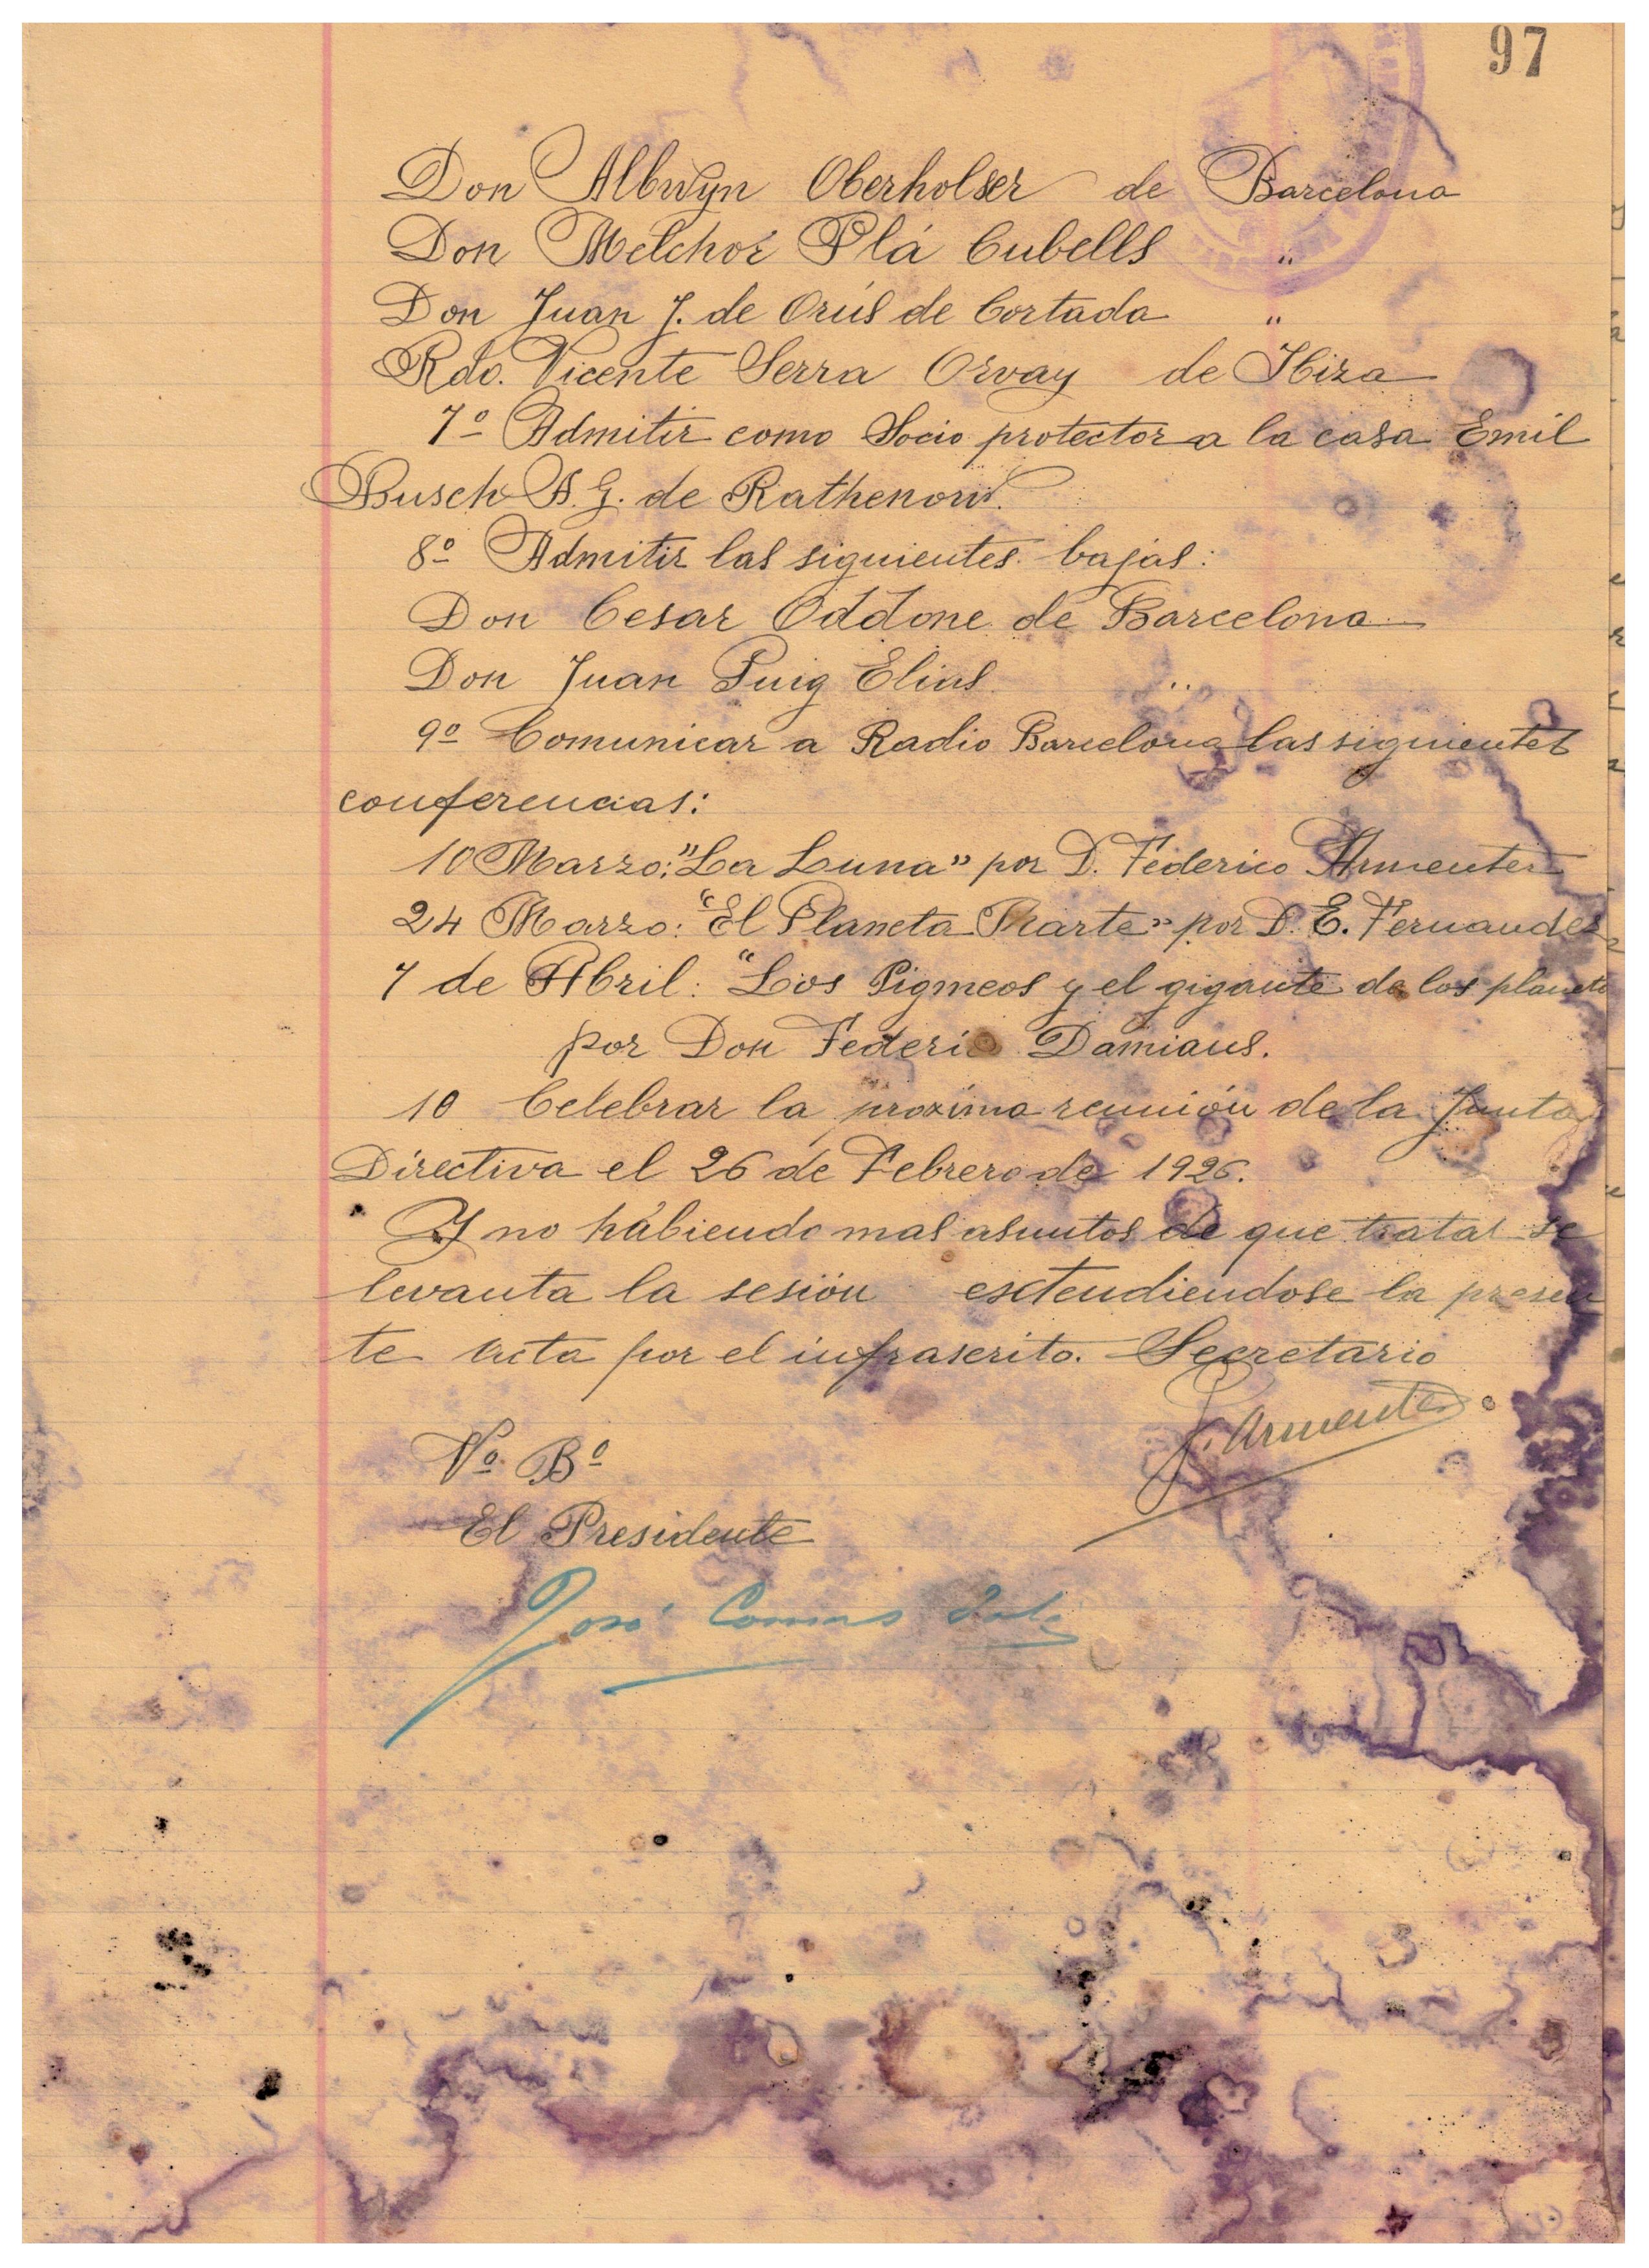 97
Don Albwyn Oberholser de Barcelona
Don Melchor Plá Cubells "
Don Juan J. de Orús de Cortada "
Rdo. Vicente Serra Orvay de Ibiza
7º Admitir como Socio protector a la casa Emil
Busch A. G. de Rathenow.
8º Admitir las siguientes bajas:
Don Cesar Oddone de Barcelona
Don Juan Puig Elias "
9º Comunicar a Radio Barcelona las siguientes
conferencias:
10 Marzo: "La Luna" por D. Federico Armenter
24 Marzo: "El Planeta Marte" por D. E. Fernandez
7 de Abril: "Los Pigmeos y el gigante de los planeta
por Don Federico Damians.
10 Celebrar la proxima reunión de la Junta
Directiva el 26 de Febrero de 1926.
Y no habiendo mas asuntos de que tratar se
levanta la sesión extendiendose la presen
te acta por el infrascrito. Secretario
F. Armenter
Vº Bº
El Presidente
José Comas Solá